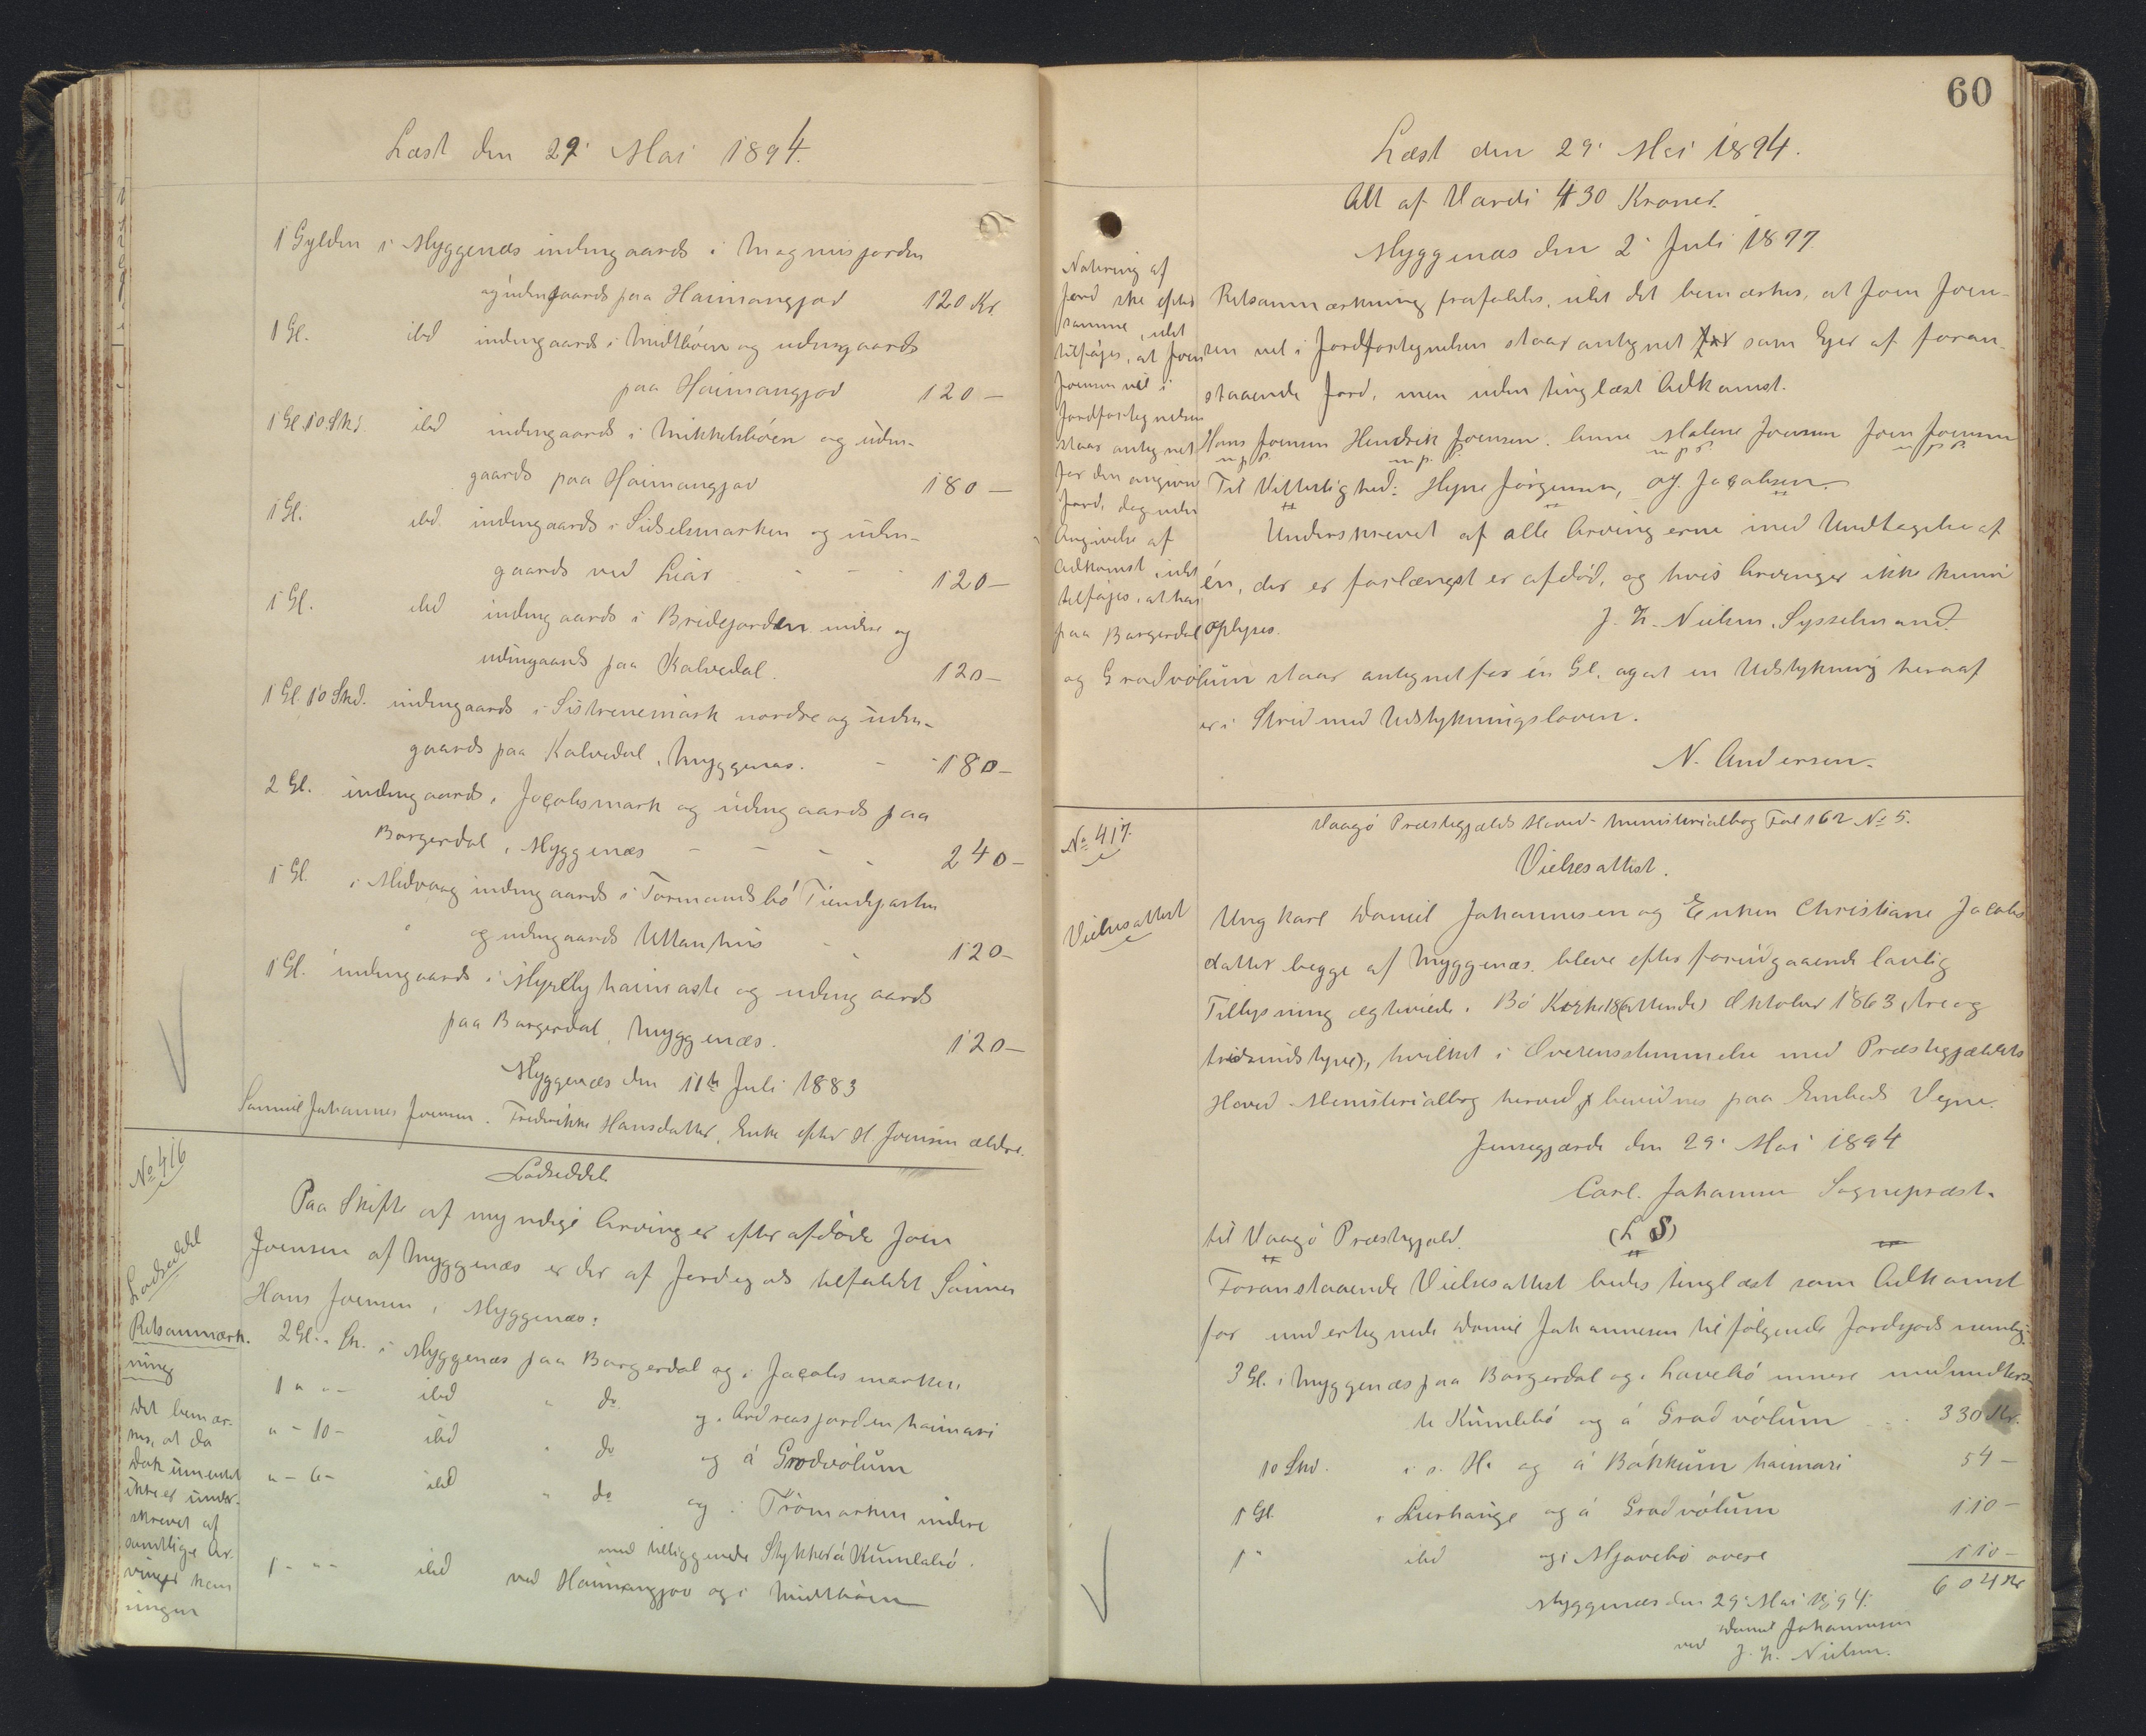 Læst den 29' Mai 1894.
1 Gylden i Myggenæs indengaards i Magnusjorden
og udengaards paa Haimangjov 120 Kr.
1 Gl. ibd indengaards i Midtbóen og udengaards
paa Haimangjov 120 —
1 Gl. 10 Skd. ibd indengaards i Mikkelsbóen og uden-
gaards paa Haimangjov 180 —
1 Gl. ibd. indengaards i Sidselsmarken og uden-
gaards ved Liar - - - 120 —
1 Gl. ibd indengaards i Bridejorden indre og
udengaards paa Kalvedal. 120 —
1 Gl. 10 Skd. indengaards i Sistrenemark nordre og uden-
gaards paa Kalvedal, Myggenæs. - 180 —
2 Gl. indengaards i Jacobsmark og udengaards paa
Borgerdal i Myggenæs - - - - 240 —
1 Gl. i Midvaag indengaards i Tormandsbó Tiendeparten
og udengaards Uttanhus - - 120 —
1 Gl. indengaards i haimaste og udengaards
paa Borgerdal, Myggenæs. 120 —
Myggenæs den 11te Juli 1883
Samuel Johannes Joensen. Fredrikke Hansdatter, Enke efter H. Joensen ældre.
No 416
Lodseddel
Lodseddel
Paa Skifte af myndige Arvinger efter afdøde Joen
Joensen af Myggenæs er der af Jordegods tilfaldet Sønnen
Hans Joensen i Myggenæs:
2 Gl. " Sk. i Myggenæs paa Borgerdal og i Jacobsmarken
1 " " - ibd " do og i Andreasjorden haimari
" - 10 - ibd " do og á Gródvólum
" - 6 - ibd " do og i Trómarken indre
med tilliggende Stykker á Kumlabó.
1 - " - ibd ved Haimangjov og i Midtbóen
Retsanmærk-
ning
Det bemær-
kes, at da
Dokumentet
ikke er under-
skrevet af
samtlige Ar-
vinger kan
ingen
60
Læst den 29' Mai 1894.
Alt af Værdi 430 Kroner.
Myggenæs den 2' Juli 1877
Notering af
Jord ske efter
samme, idet
tilføjes, at Joen
Joensen vel i
Jordfortegnelsen
staar antegnet
for den angivne
Jord, dog uden
Angivelse af
Adkomst, idet
tilføjes, at han
paa Borgerdal
Retsanmærkning frafaldes, idet det bemærkes, at Joen Joen-
sen vel i Jordfortegnelsen staar antegnet som Ejer af foran-
staaende Jord, men uden tinglæst Adkomst.
Hans Joensen Hendrik Joensen. Anne Malene Joensen Joen Joensen
m. p. P. m. p. P. m. p. P. m. p. P.
Til Vitterlighed: Jørgensen, Jacobsen.
Underskrevet af alle Arvingerne med Undtagelse af
én, der er forlængst er afdød, og hvis Arvinger ikke kunne
oplyses. J. H. Nielsen, Sysselmand
og Gródvólum staar antegnet for én Gl. og at en Udstykning heraf
er i Strid med Udstykningsloven.
N. Andersen.
No 417.
Vielsesattest
Vaagø Præstegjælds Hoved-Ministerialbog Fol 162 No 5.
Vielsesattest.
Ungkarl Daniel Johannesen og Enken Christiane Jacobs
datter begge af Myggenæs, bleve efter forudgaaende lovlig
Tillysning ægteviede i Bö Kirke 18 (attende) Oktober 1863 (tre og
tresindstyve), hvilket i Overensstemmelse med Præstegjældets
Hoved-Ministerialbog herved bevidnes paa Embeds Vegne.
Jensegjærde den 29' Mai 1894
Carl. Johansen Sognepræst.
til Vaagø Præstegjæld. (L S)
Foranstaaende Vielsesattest bedes tinglæst som Adkomst
for undertegnede Daniel Johannesen til følgende Jordegods nemlig:
3 Gl. i Myggenæs paa Borgerdal og i Lavebó innere med
te Kumlebó og á Gródvólum - - - 330 Kr.
10 Skd. i s. H. og á Bákkum haimari 54 —
1 Gl. i Lierhauge og á Gródvólum 110 —
1 " ibd og i Mjavebó overe 110 —
604 Kr
Myggenæs den 29' Mai 1894.
Daniel Johannesen
ved J. H. Nielsen.